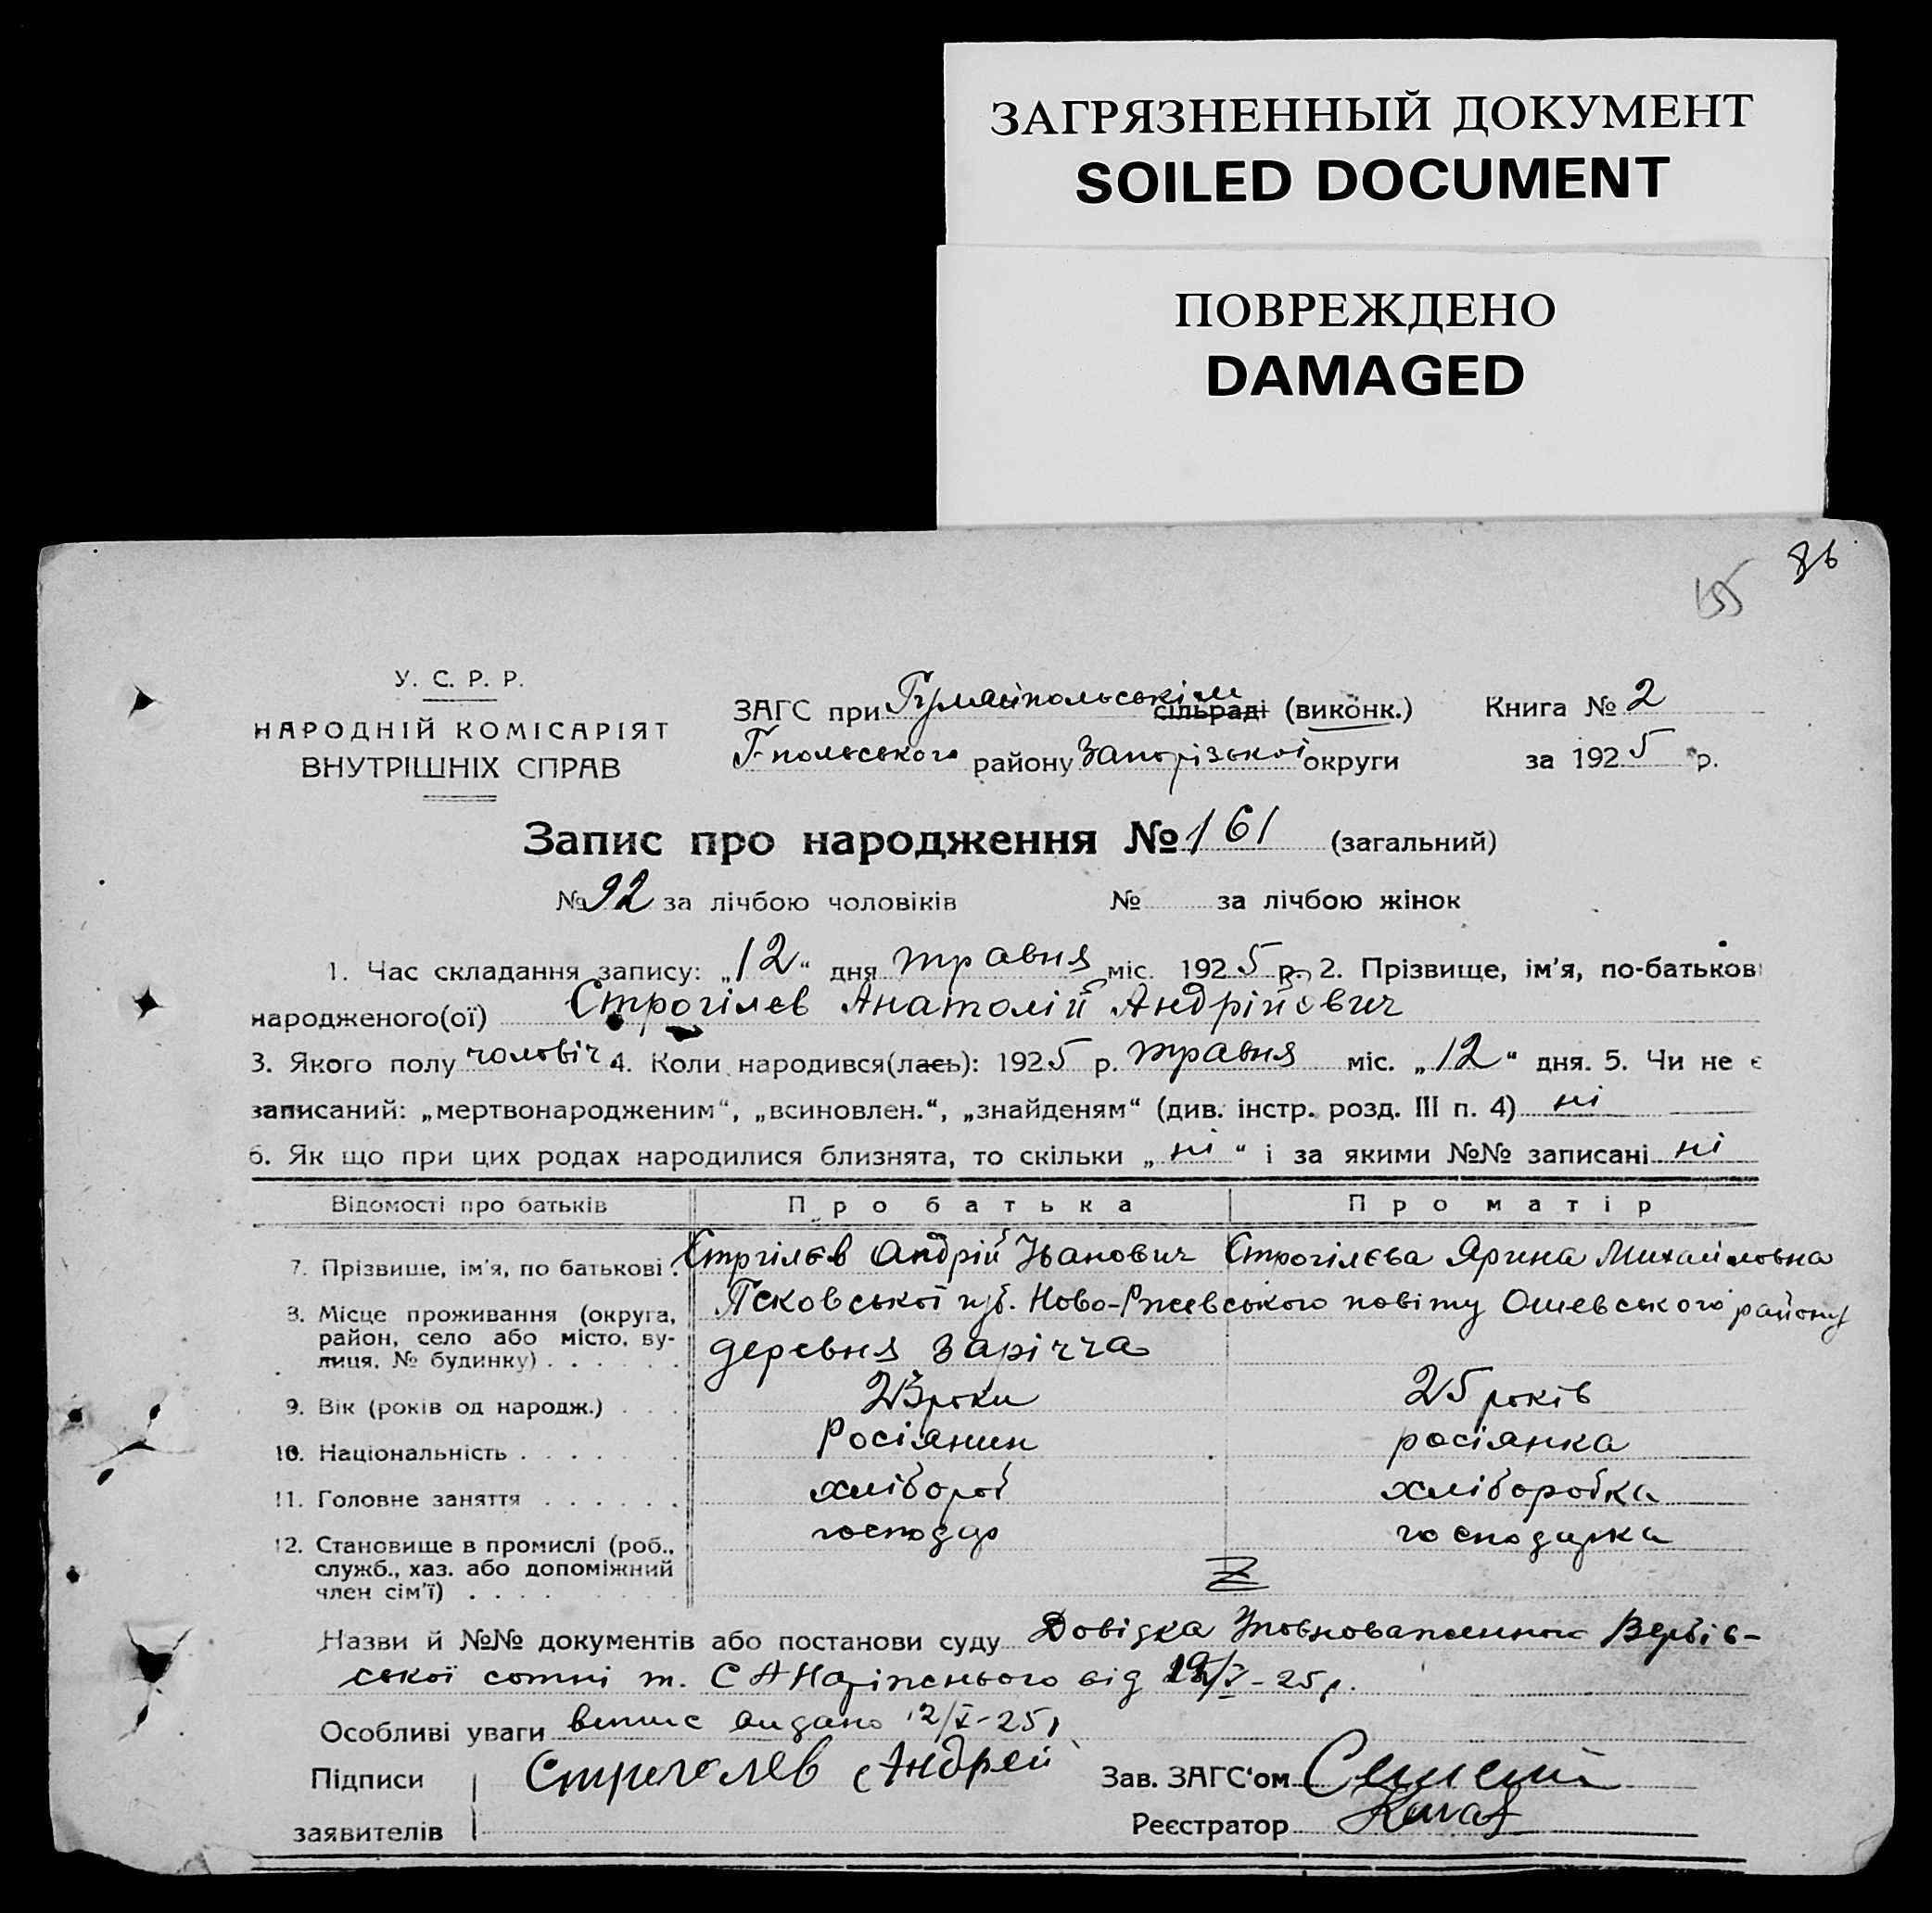 ЗАГРЯЗНЕННЫЙ ДОКУМЕНТ
SOILED DOCUMENT
ПОВРЕЖДЕНО
DAMAGED
86
155
У. С. Р. Р.
НАРОДНІЙ КОМІСАРІЯТ
ВНУТРІШНІХ СПРАВ
ЗАГС при Гуляйпольськім сільраді (виконк.) Книга № 2
Г-польського району Запорізької округи за 1925 р.
Запис про народження № 161 (загальний)
№ 92 за лічбою чоловіків № за лічбою жінок
1. Час складання запису: „12“ дня травня міс. 1925 р. 2. Прізвище, ім'я, по-батькові
народженого(ої) Строгілєв Анатолій Андрійович
3. Якого полу чоловіч 4. Коли народився(лась): 1925 р. травня міс. „12“ дня. 5. Чи не є
записаний: „мертвонародженим“, „всиновлен.“, „знайденям“ (див. інстр. розд. III п. 4) ні
6. Як що при цих родах народилися близнята, то скільки „ні“ і за якими №№ записані ні
Відомості про батьків Про батька Про матір
7. Прізвише, ім'я, по батькові . Стргілєв Андрій Іванович Строгілєва Ярина Михайловна
8. Місце проживання (округа, район, село або місто, вулиця, № будинку) . . . . . . Псковської губ. Ново-Ржевського повіту Ошевського району
деревня Зарічча
9. Вік (років од народж.) . . . 23 роки 25 років
10. Національність . . . . . . . Росіянин росіянка
11. Головне заняття . . . . . . хлібороб хліборобка
12. Становище в промислі (роб., служб., хаз. або допоміжний член сім'ї) . . . . господар господарка
Z
Назви й №№ документів або постанови суду Довідка Уповноваженного Вербів-
ської сотні т. С А Наріжнього від 12/V-25р.
Особливі уваги випис видано 12/V-25р
Підписи Стригелев Андрей Зав. ЗАГС'ом
заявителів Реєстратор